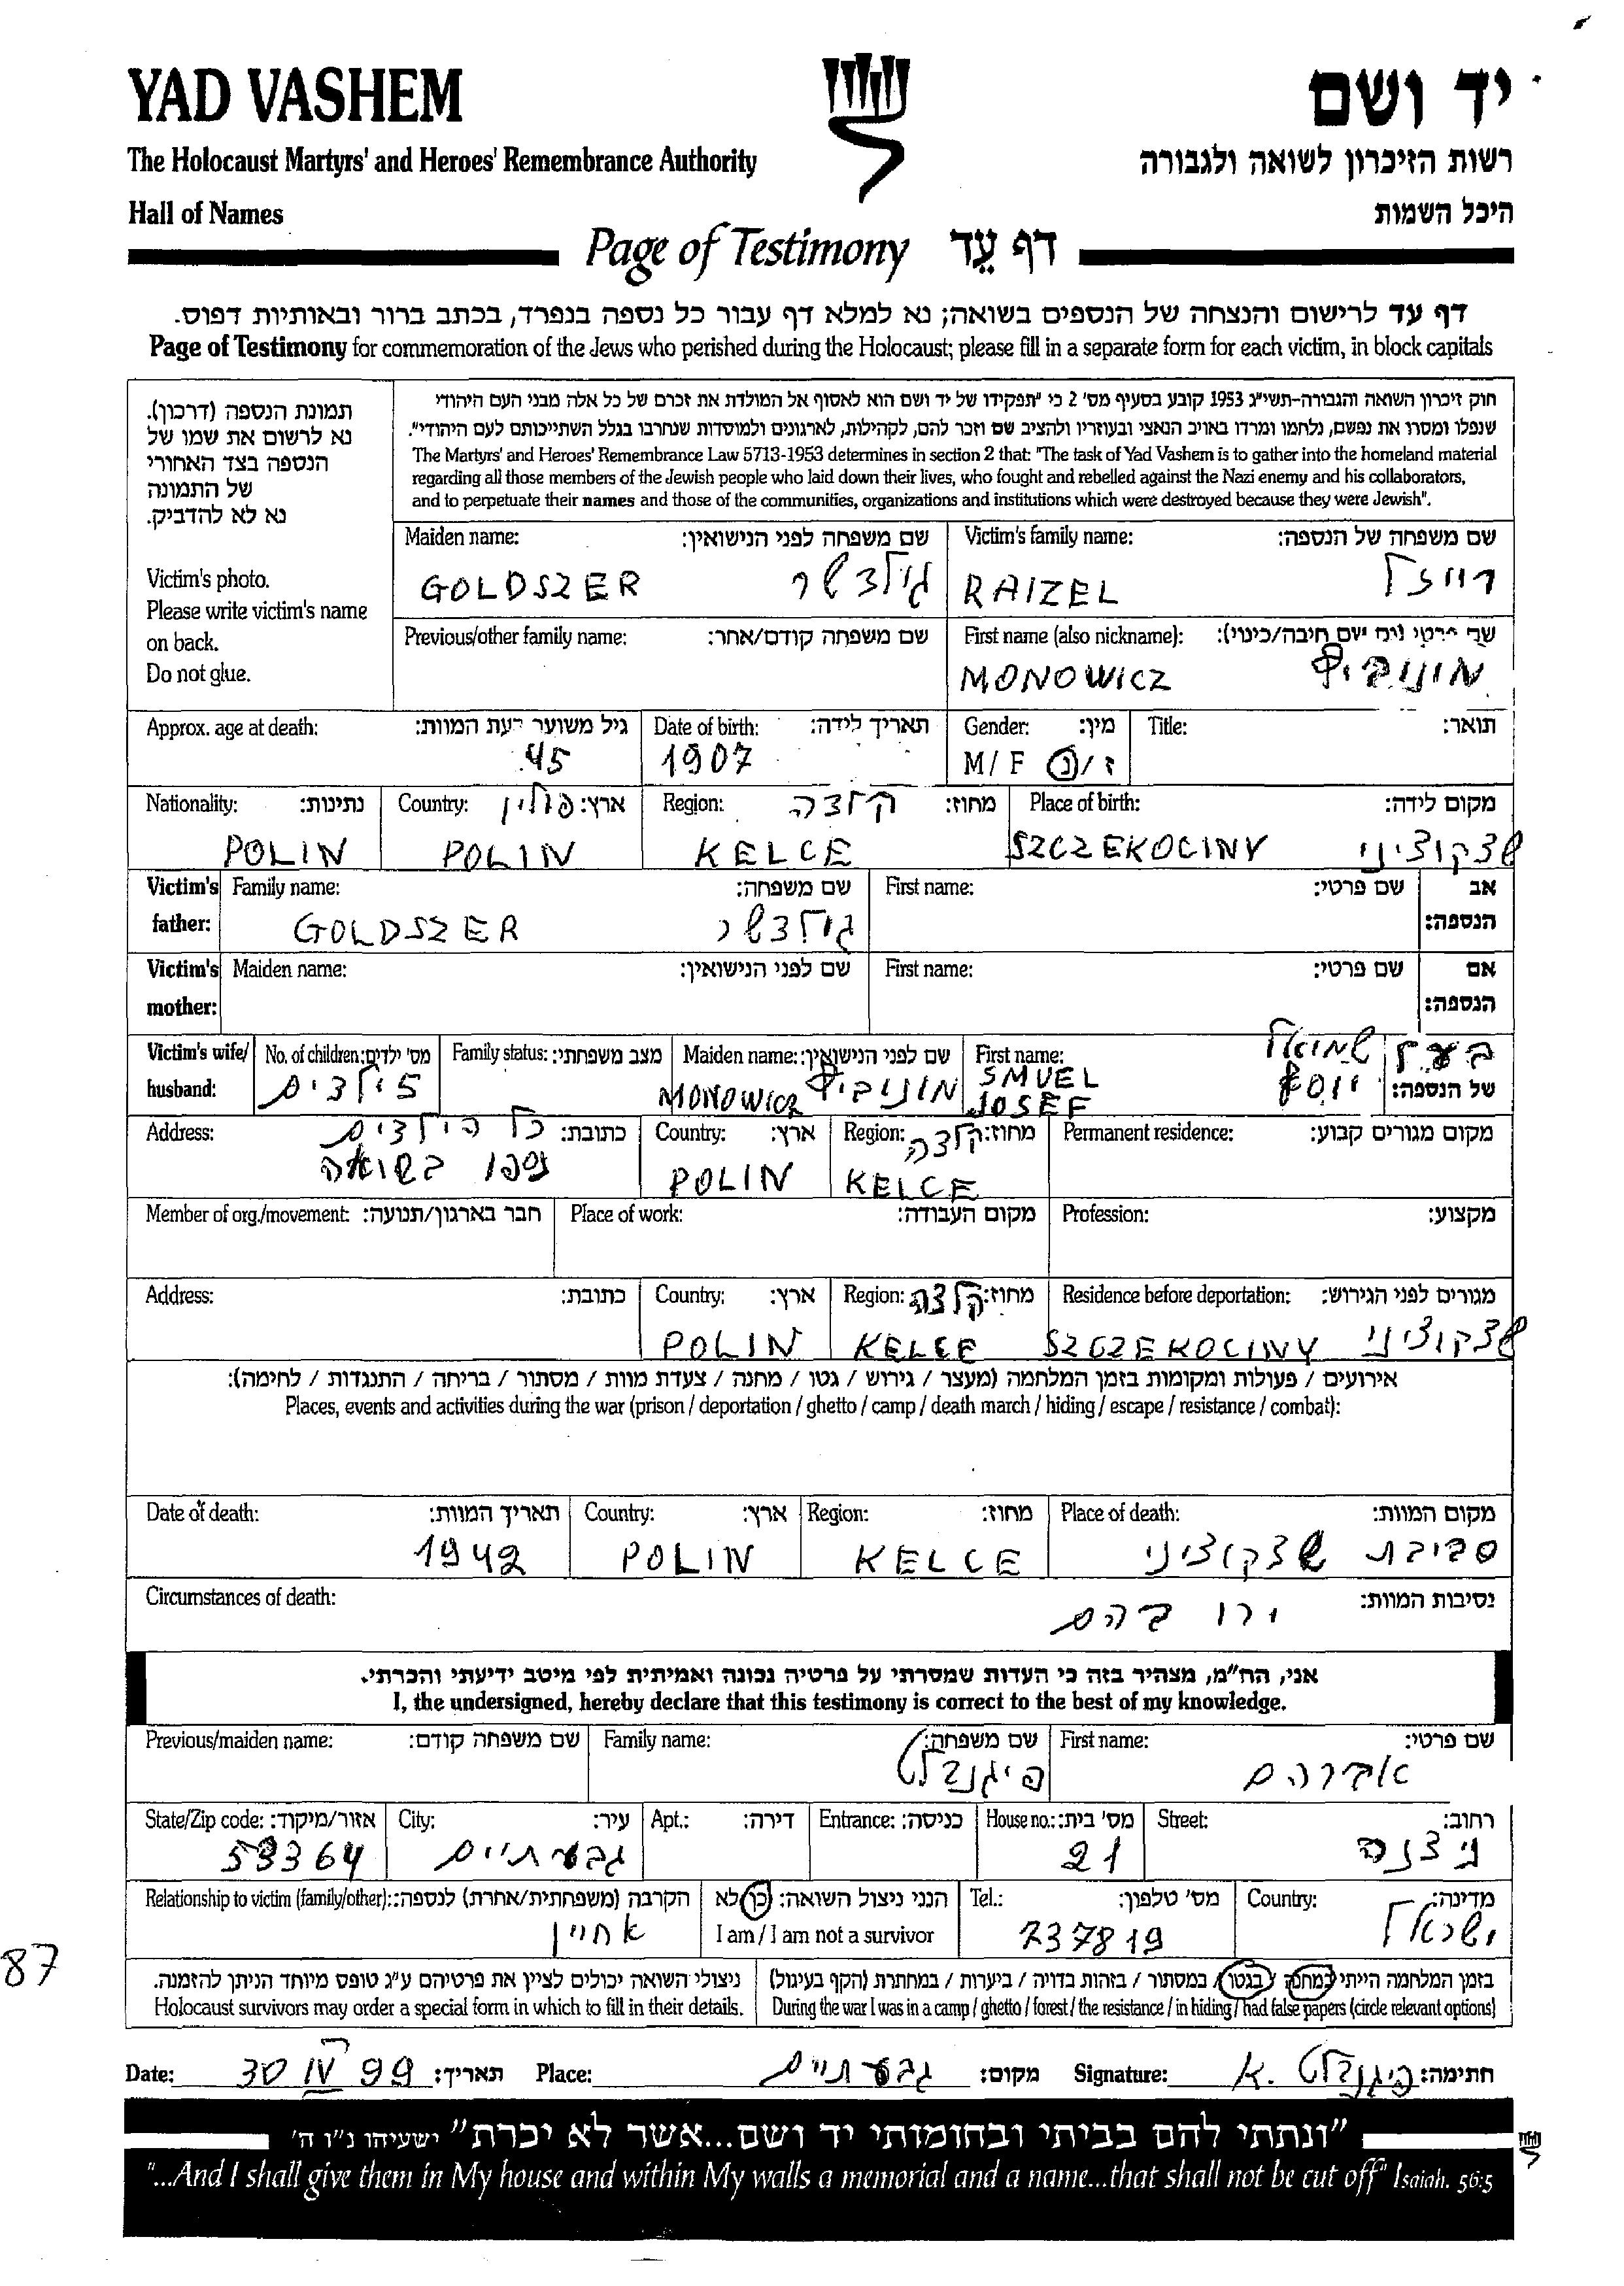 YAD VASHEM יד ושם
The Holocaust Martyrs' and Heroes' Remembrance Authority רשות הזיכרון לשואה ולגבורה
Hall of Names היכל השמות
Page of Testimony דף עֵד
דף עד לרישום והנצחה של הנספים בשואה; נא למלא דף עבור כל נספה בנפרד, בכתב ברור ובאותיות דפוס.
Page of Testimony for commemoration of the Jews who perished during the Holocaust; please fill in a separate form for each victim, in block capitals
תמונת הנספה (דרכון).
נא לרשום את שמו של
הנספה בצד האחורי
של התמונה
נא לא להדביק.
Victim's photo.
Please write victim's name
on back.
Do not glue.
חוק זיכרון השואה והגבורה-תשי"ג 1953 קובע בסעיף מס' 2 כי "תפקידו של יד ושם הוא לאסוף אל המולדת את זכרם של כל אלה מבני העם היהודי
שנפלו ומסרו את נפשם, נלחמו ומרדו באויב הנאצי ובעוזריו ולהציב שם וזכר להם, לקהילות, לארגונים ולמוסדות שנחרבו בגלל השתייכותם לעם היהודי".
The Martyrs' and Heroes' Remembrance Law 5713-1953 determines in section 2 that: "The task of Yad Vashem is to gather into the homeland material
regarding all those members of the Jewish people who laid down their lives, who fought and rebelled against the Nazi enemy and his collaborators,
and to perpetuate their names and those of the communities, organizations and institutions which were destroyed because they were Jewish".
Maiden name: שם משפחה לפני הנישואין: Victim's family name: שם משפחה של הנספה:
GOLDSZER גולדשר RAIZEL רייזל
Previous/other family name: שם משפחה קודם/אחר: First name (also nickname): שם פרטי (גם שם חיבה/כינוי):
MONOWICZ מונוביץ
Approx. age at death: גיל משוער בעת המוות: Date of birth: תאריך לידה: Gender: מין: Title: תואר:
45 1907 M/F ז/נ
Nationality: נתינות: Country: ארץ: פולין Region: קלצה מחוז: Place of birth: מקום לידה:
POLIN POLIN KELCE SZCZEKOCINY שצקוציני
Victim's Family name: שם משפחה: First name: שם פרטי: אב
father: GOLDSZER גולדשר הנספה:
Victim's Maiden name: שם לפני הנישואין: First name: שם פרטי: אם
mother: הנספה:
Victim's wife/ No. of children: מס' ילדים: Family status: מצב משפחתי: Maiden name: שם לפני הנישואין: First name: שמואל בעל
husband: 5 ילדים MONOWICZ מונוביץ SMUEL JOSEF יוסף של הנספה:
Address: כל הילדים כתובת: Country: ארץ: Region: קלצה מחוז: Permanent residence: מקום מגורים קבוע:
נספו בשואה POLIN KELCE
Member of org./movement: חבר בארגון/תנועה: Place of work: מקום העבודה: Profession: מקצוע:
Address: כתובת: Country: ארץ: Region: קלצה מחוז: Residence before deportation: מגורים לפני הגירוש:
POLIN KELCE SZCZEKOCINY שצקוציני
אירועים / פעולות ומקומות בזמן המלחמה (מעצר / גירוש / גטו / מחנה / צעדת מוות / מסתור / בריחה / התנגדות / לחימה):
Places, events and activities during the war (prison / deportation / ghetto / camp / death march / hiding / escape / resistance / combat):
Date of death: תאריך המוות: Country: ארץ: Region: מחוז: Place of death: מקום המוות:
1942 POLIN KELCE סביבת שצקוציני
Circumstances of death: נסיבות המוות:
ירו בהם
אני, הח"מ, מצהיר בזה כי העדות שמסרתי על פרטיה נכונה ואמיתית לפי מיטב ידיעתי והכרתי.
I, the undersigned, hereby declare that this testimony is correct to the best of my knowledge.
Previous/maiden name: שם משפחה קודם: Family name: שם משפחה: First name: שם פרטי:
פיגנבלט אברהם
State/Zip code: אזור/מיקוד: City: עיר: Apt.: דירה: Entrance: כניסה: House no.: מס' בית: Street: רחוב:
53364 גבעתיים 21 ניצנה
Relationship to victim (family/other): הקרבה (משפחתית/אחרת) לנספה: הנני ניצול השואה: כן/לא Tel.: מס' טלפון: Country: מדינה:
אחיין I am / I am not a survivor 737819 ישראל
87
ניצולי השואה יכולים לציין את פרטיהם ע"ג טופס מיוחד הניתן להזמנה. בזמן המלחמה הייתי במחנה / בגטו / במסתור / בזהות בדויה / ביערות / במחתרת (הקף בעיגול)
Holocaust survivors may order a special form in which to fill in their details. During the war I was in a camp / ghetto / forest / the resistance / in hiding / had false papers (circle relevant options)
Date: 30 IV 99 תאריך: Place: גבעתיים מקום: Signature: פיגנבלט א. חתימה:
"ונתתי להם בביתי ובחומותי יד ושם...אשר לא יכרת" ישעיהו נ"ו ה'
"...And I shall give them in My house and within My walls a memorial and a name...that shall not be cut off" Isaiah. 56:5